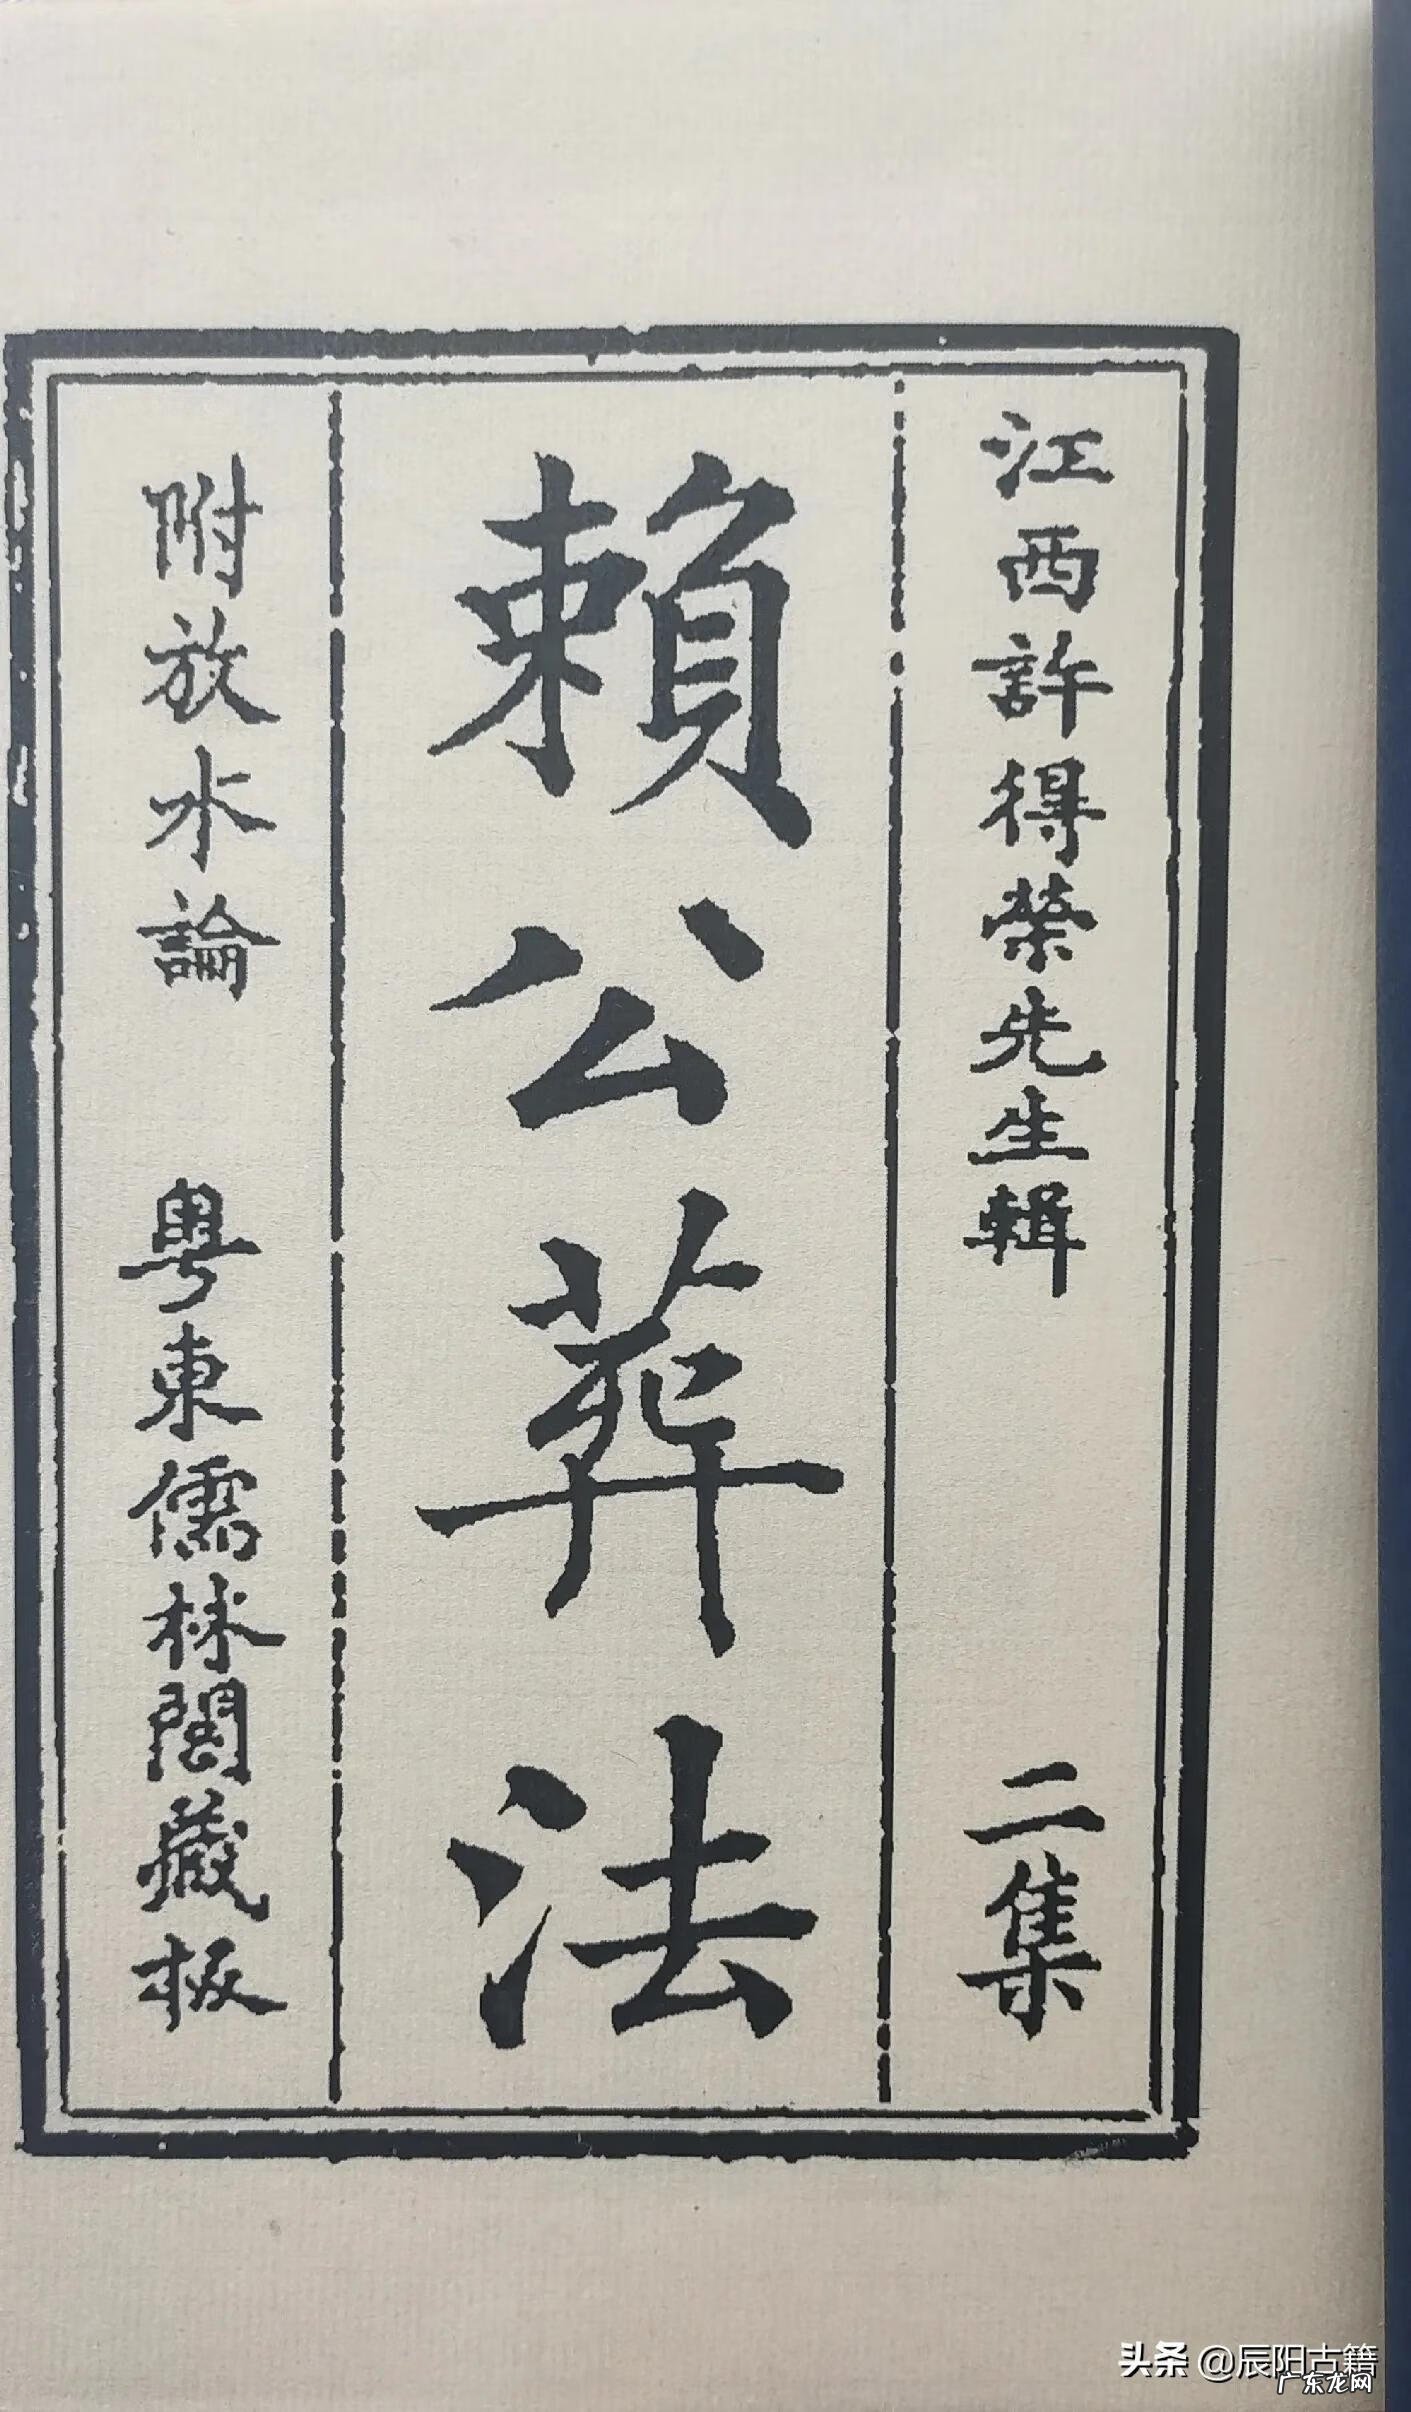 江西許得榮先生輯 二集
賴公葬法
附放水論 粤東儒林閣藏板
头条 @辰阳古籍
广东龙网